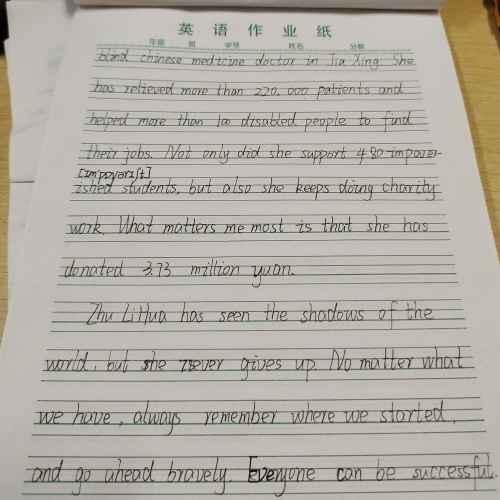 英语作业纸
年级 班 学号 姓名 分数
blind chinese medicine doctor in Jia Xing. She
has relieved more than 220,000 patients and
helped more than 100 disabled people to find
their jobs. Not only did she support 480 impover-
[impoverist]
ished students, but also she keeps doing charity
work. What matters me most is that she has
donated 3.73 million yuan.
Zhu LiHua has seen the shadows of the
world, but she never gives up. No matter what
we have, always remember where we started,
and go ahead bravely. Everyone can be successful.